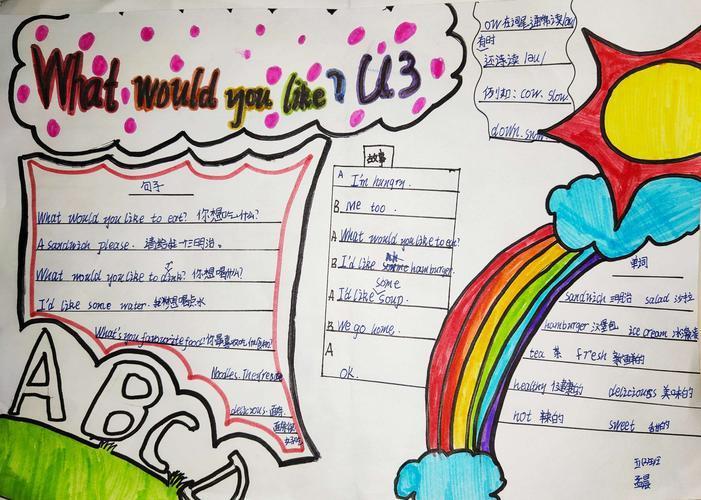 What would you like? U3
句子
What would you like to eat? 你想吃什么?
A sandwich please. 请给我一个三明治。
What would you like to drink? 你想喝什么?
I'd like some water. 我想喝点水
What's you favourite food? 你最喜欢吃什么食物?
Noodles. They're
delicious 面条
面条很
好吃
故事
A I'm hungry.
B me too.
A What would you like to eat?
B I'd like hamburger.
some
A I'd like soup.
B We go home.
A
OK.
ow 在词尾通常读/əu/
有时
还读 /au/
例如: cow. slow.
down. snow
单词
sandwich 三明治 salad 沙拉
hamburger 汉堡包 ice cream 冰淇淋
tea 茶 fresh 新鲜的
healthy 健康的 deliciouss 美味的
hot 辣的 sweet 甜的
ABC